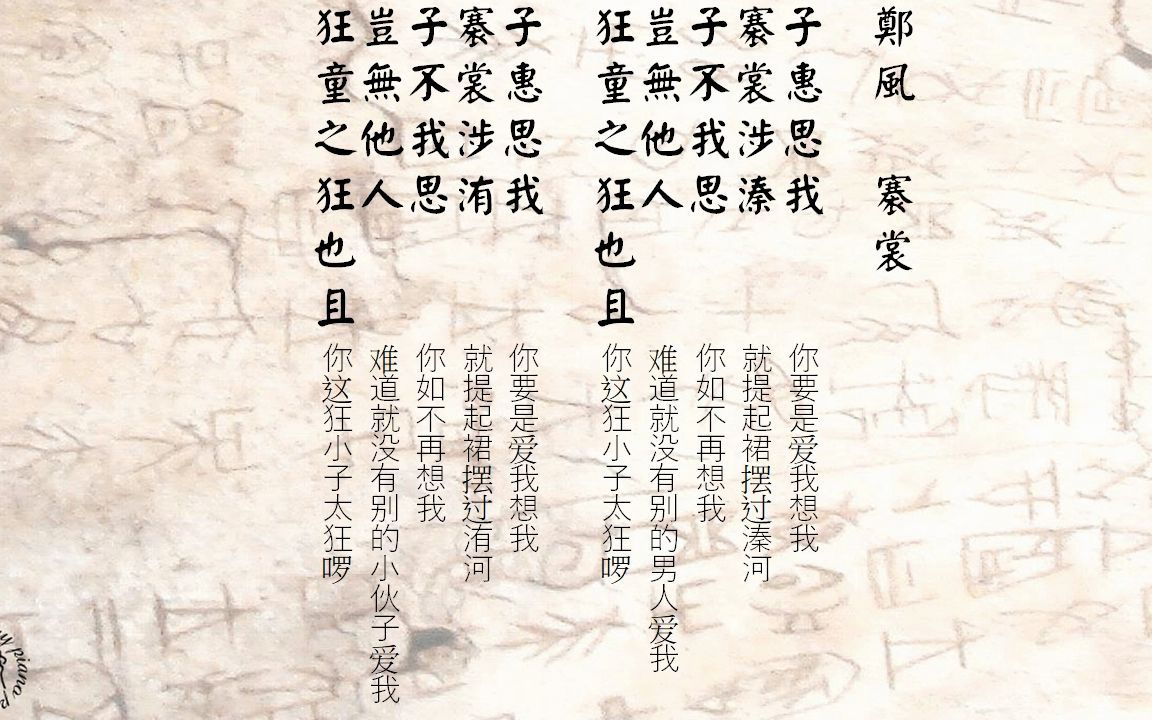 鄭風 褰裳
子惠思我
褰裳涉溱
子不我思
豈無他人
狂童之狂也且
你要是爱我想我
就提起裙摆过溱河
你如不再想我
难道就没有别的男人爱我
你这狂小子太狂啰
子惠思我
褰裳涉洧
子不我思
豈無他人
狂童之狂也且
你要是爱我想我
就提起裙摆过洧河
你如不再想我
难道就没有别的小伙子爱我
你这狂小子太狂啰
piano